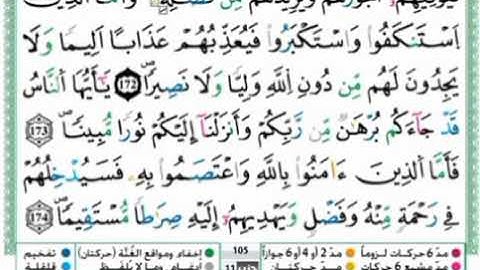 فَيُوَفِّيهِمْ أُجُورَهُمْ وَيَزِيدُهُم مِّن فَضْلِهِۦ وَأَمَّا ٱلَّذِينَ
ٱسْتَنكَفُوا۟ وَٱسْتَكْبَرُوا۟ فَيُعَذِّبُهُمْ عَذَابًا أَلِيمًا وَلَا
يَجِدُونَ لَهُم مِّن دُونِ ٱللَّهِ وَلِيًّا وَلَا نَصِيرًا 172 يَـٰٓأَيُّهَا ٱلنَّاسُ
قَدْ جَآءَكُم بُرْهَـٰنٌ مِّن رَّبِّكُمْ وَأَنزَلْنَآ إِلَيْكُمْ نُورًا مُّبِينًا 173
فَأَمَّا ٱلَّذِينَ ءَامَنُوا۟ بِٱللَّهِ وَٱعْتَصَمُوا۟ بِهِۦ فَسَيُدْخِلُهُمْ
فِى رَحْمَةٍ مِّنْهُ وَفَضْلٍ وَيَهْدِيهِمْ إِلَيْهِ صِرَٰطًا مُّسْتَقِيمًا 174
مدّ 6 حركات لزوماً مدّ 2 أو 4 أو 6 جوازاً 105 إخفاء ومواقع الغُنَّة (حركتان) تفخيم
مدّ حركتان إدغام، وما لا يُلفَظ قلقلة